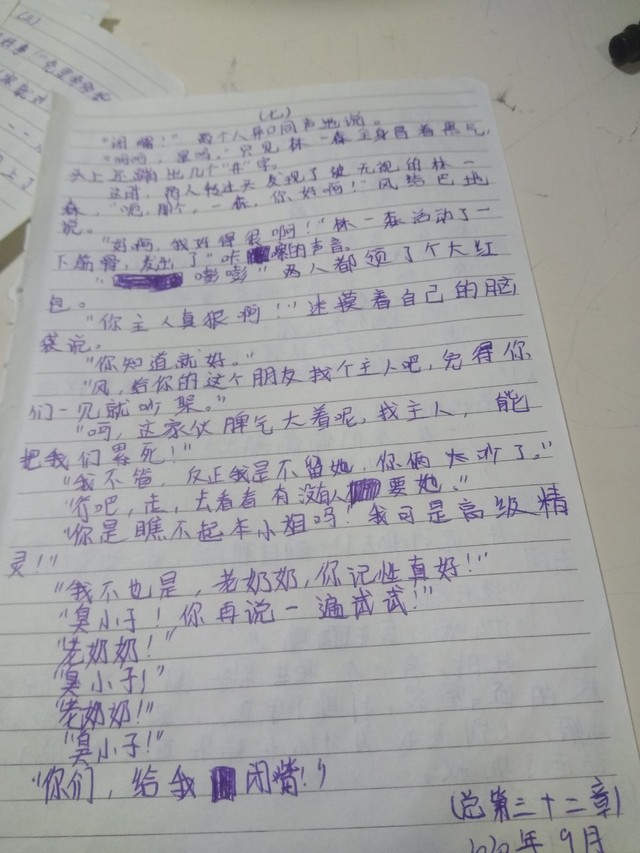 (七)
"闭嘴!" 两个人异口同声地说。
"呵呵,是吗。"只见林一森全身冒着黑气,
头上还蹦出几个"井"字。
这时,两人转过头发现了被无视的林一
森,"呃,那个,一森,你好啊!"风结巴地
说。
"好啊,我好得很啊!"林一森活动了一
下筋骨,发出了"咔嚓的声音。
" 嘭嘭"两人都领了个大红
包。
"你主人真狠啊!"迷摸着自己的脑
袋说。
"你知道就好。"
"风,给你的这个朋友找个主人吧,免得你
们一见就吵架。"
"呵,这家伙脾气大着呢,找主人,能
把我们累死!"
"我不管,反正我是不留她,你俩太吵了。"
"行吧,走,去看看有没有人要她。"
"你是瞧不起本小姐吗!我可是高级精
灵!"
"我不也是,老奶奶,你记性真好!"
"臭小子!你再说一遍试试!"
"老奶奶!"
"臭小子!"
"老奶奶!"
"臭小子!"
"你们,给我闭嘴!"
(总第三十二章)
年9月